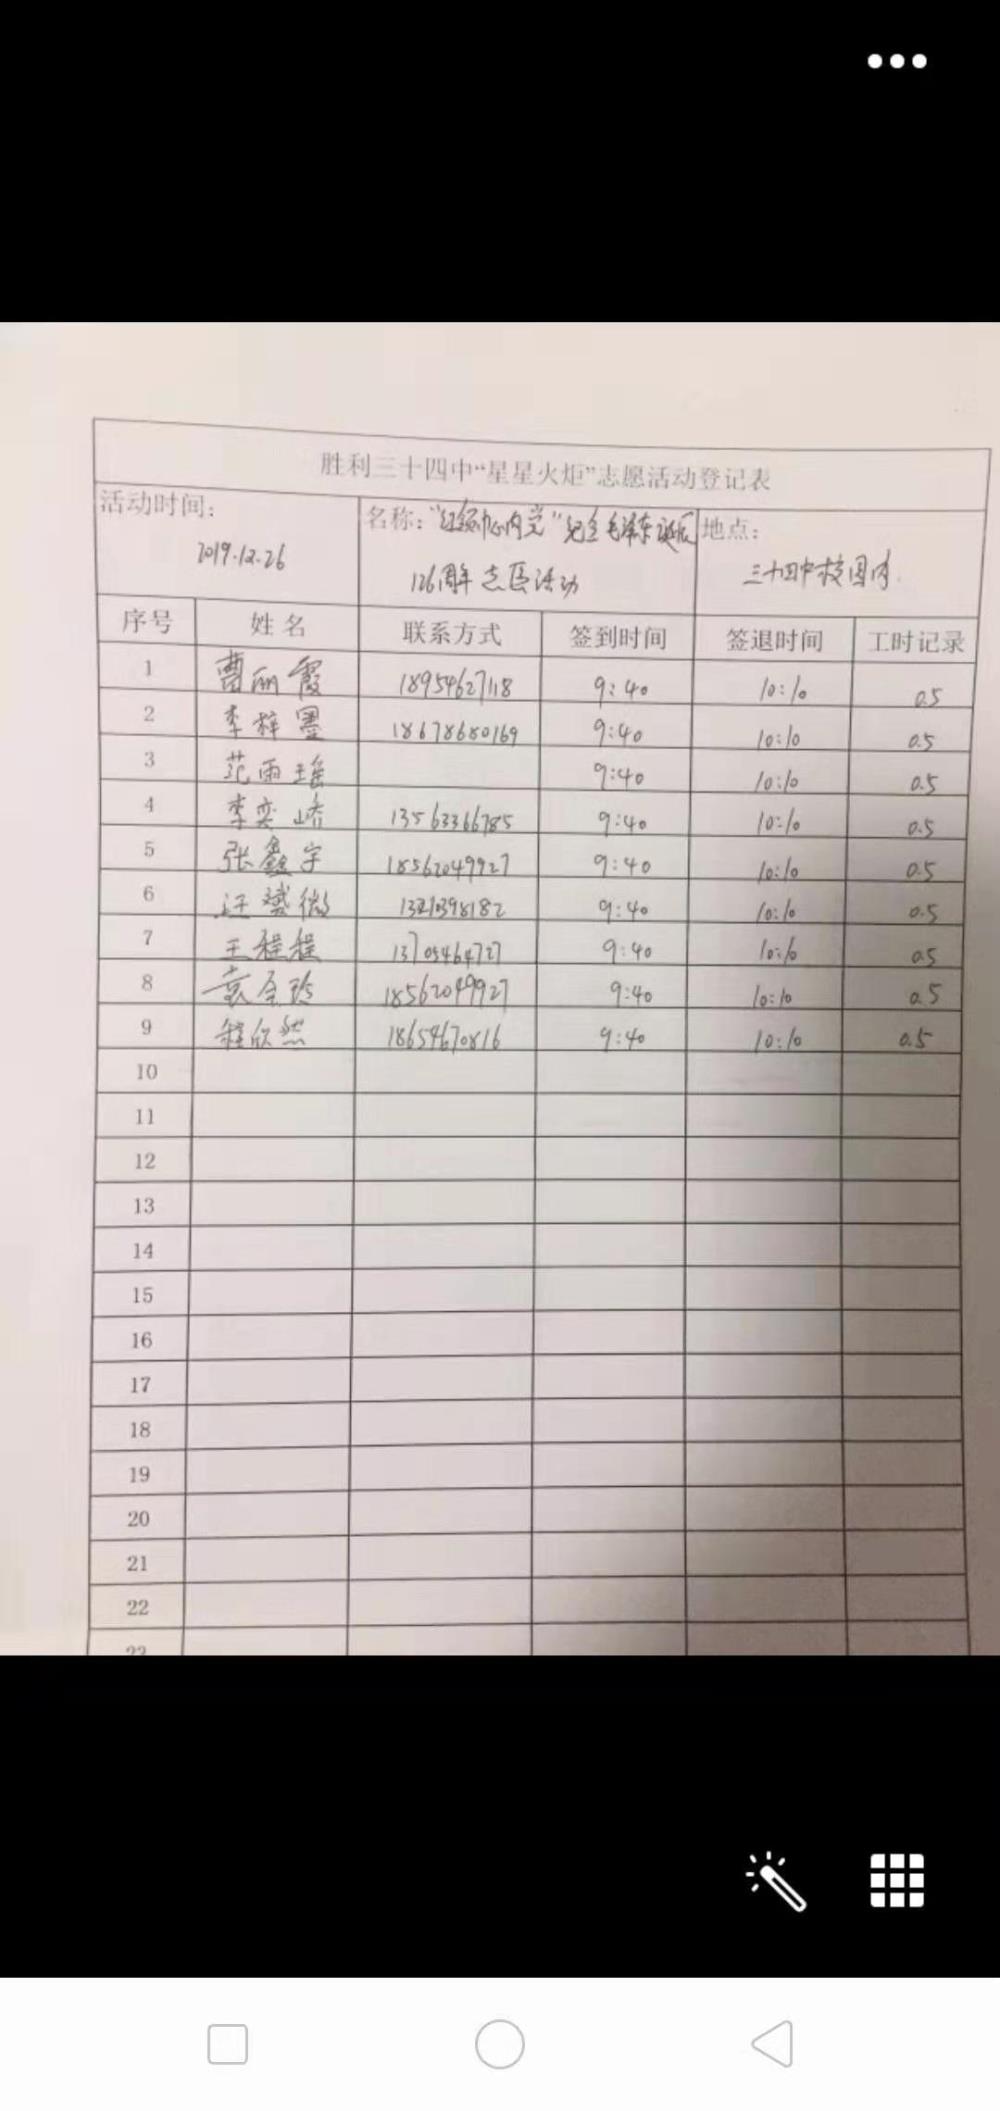 胜利三十四中“星星火炬”志愿活动登记表
活动时间： 名称：“红领巾心向党”纪念毛泽东诞辰 地点：
2019.12.26 126周年志愿活动 三十四中校园内
序号 姓名 联系方式 签到时间 签退时间 工时记录
1 曹丽霞 18954627118 9:40 10:10 0.5
2 李梓墨 18678680169 9:40 10:10 0.5
3 范雨瑶 9:40 10:10 0.5
4 李奕峤 13563366785 9:40 10:10 0.5
5 张鑫宇 18562049927 9:40 10:10 0.5
6 汪赟微 1321398182 9:40 10:10 0.5
7 王程程 13705464727 9:40 10:10 0.5
8 袁玲 18562049927 9:40 10:10 0.5
9 程欣然 18654670816 9:40 10:10 0.5
10
11
12
13
14
15
16
17
18
19
20
21
22